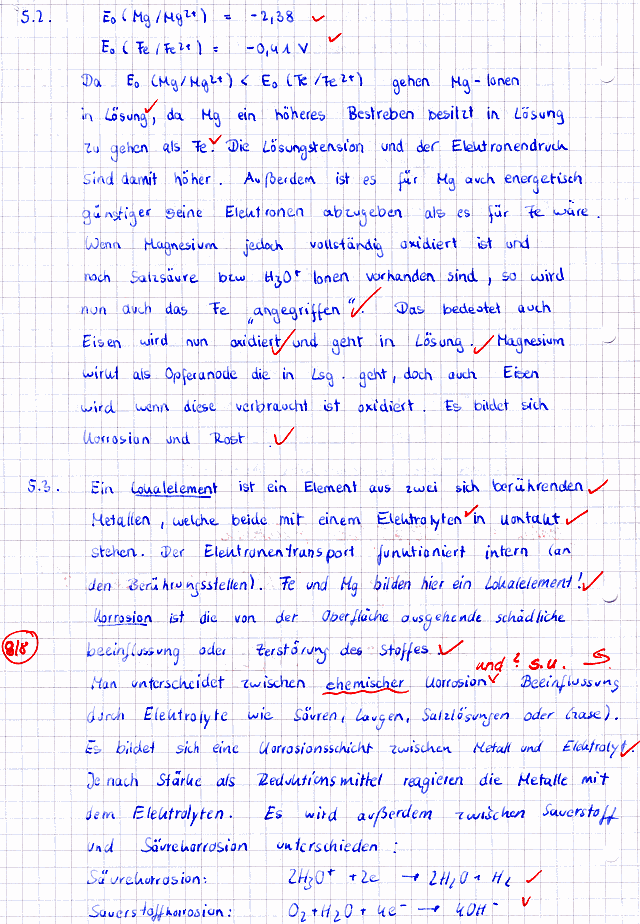 5.2. E₀ (Mg/Mg²⁺) = -2,38
E₀ (Fe/Fe²⁺) = -0,41 V
Da E₀ (Mg/Mg²⁺) < E₀ (Fe/Fe²⁺) gehen Mg-Ionen
in Lösung, da Mg ein höheres Bestreben besitzt in Lösung
zu gehen als Fe. Die Lösungstension und der Elektronendruck
sind damit höher. Außerdem ist es für Mg auch energetisch
günstiger seine Elektronen abzugeben als es für Fe wäre.
Wenn Magnesium jedoch vollständig oxidiert ist und
noch Salzsäure bzw H₃O⁺ Ionen vorhanden sind, so wird
nun auch das Fe „angegriffen“. Das bedeutet auch
Eisen wird nun oxidiert und geht in Lösung. Magnesium
wirkt als Opferanode die in Lsg. geht, doch auch Eisen
wird wenn diese verbraucht ist oxidiert. Es bildet sich
Korrosion und Rost.
5.3. Ein Lokalelement ist ein Element aus zwei sich berührenden
Metallen, welche beide mit einem Elektrolyten in Kontakt
stehen. Der Elektronentransport funktioniert intern (an
den Berührungsstellen). Fe und Mg bilden hier ein Lokalelement!
Korrosion ist die von der Oberfläche ausgehende schädliche
8/8 beeinflussung oder Zerstörung des Stoffes.
und ? s.u. S.
Man unterscheidet zwischen chemischer Korrosion Beeinflussung
durch Elektrolyte wie Säuren, Laugen, Salzlösungen oder Gase).
Es bildet sich eine Korrosionsschicht zwischen Metall und Elektrolyt.
Je nach Stärke als Reduktionsmittel reagieren die Metalle mit
dem Elektrolyten. Es wird außerdem zwischen Sauerstoff
und Säurekorrosion unterschieden:
Säurekorrosion: 2H₃O⁺ + 2e → 2H₂O + H₂
Sauerstoffkorrosion: O₂ + H₂O + 4e⁻ → 4OH⁻